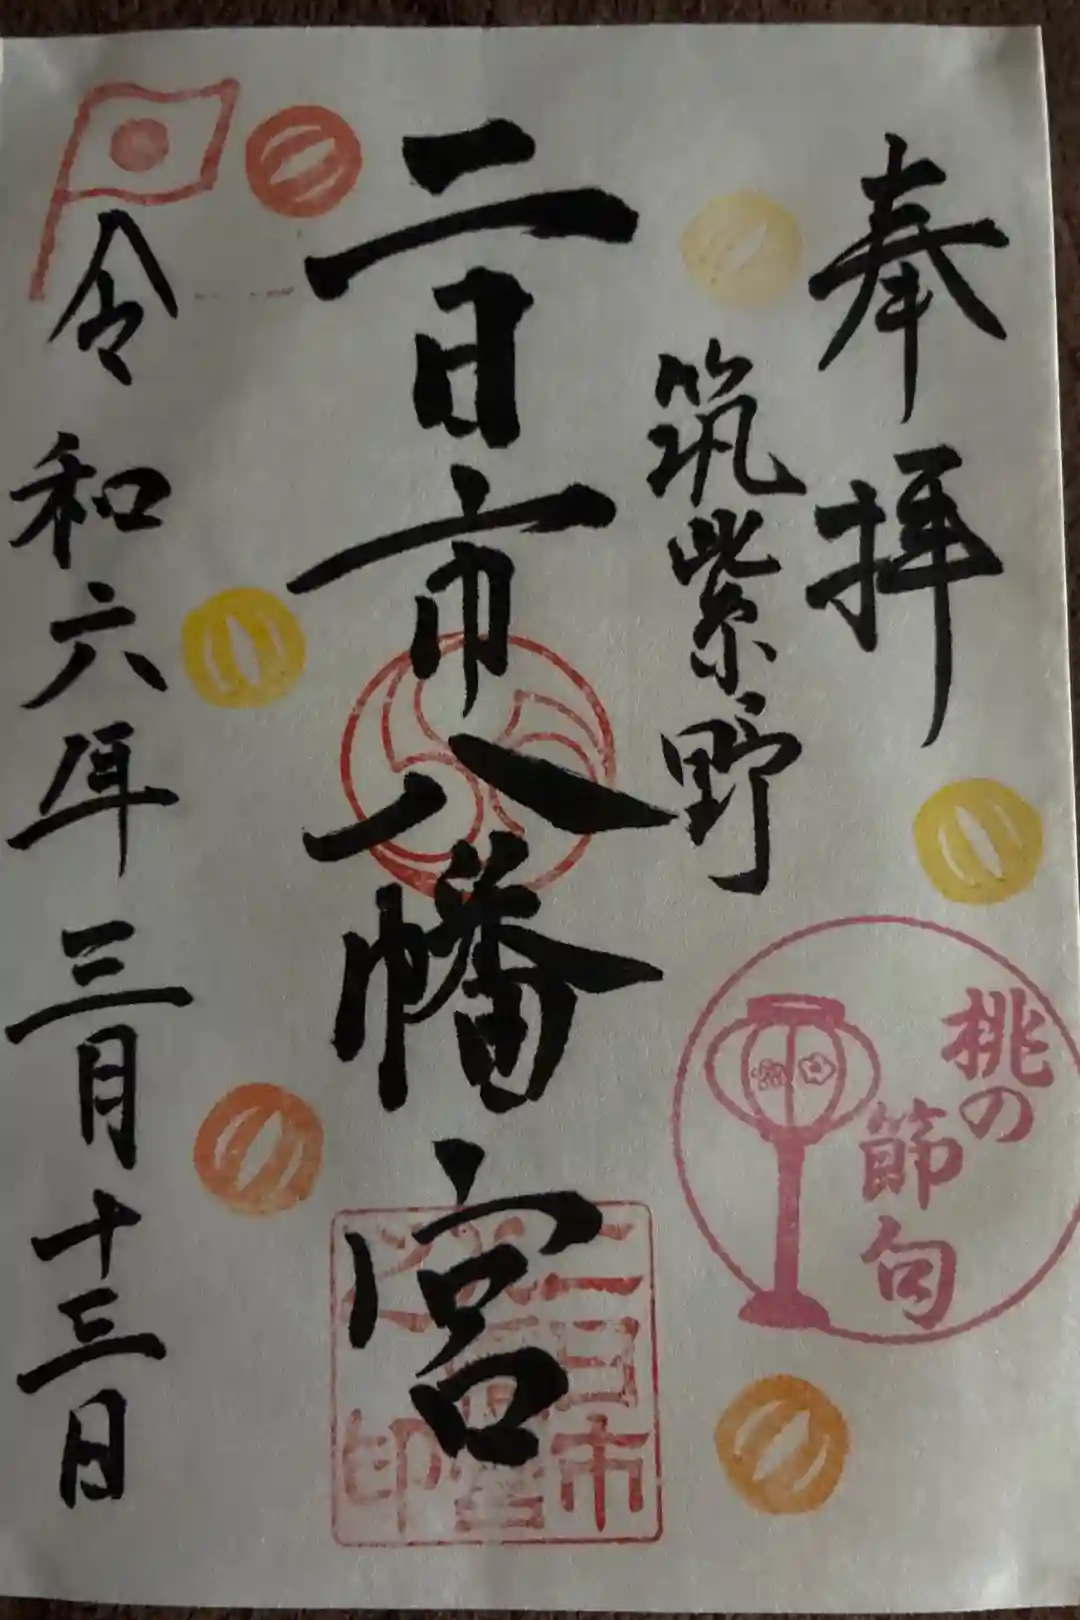 奉拝
筑紫野
二日市八幡宮
令和六年三月十三日
桃の
節句
二日市
八幡宮
之印